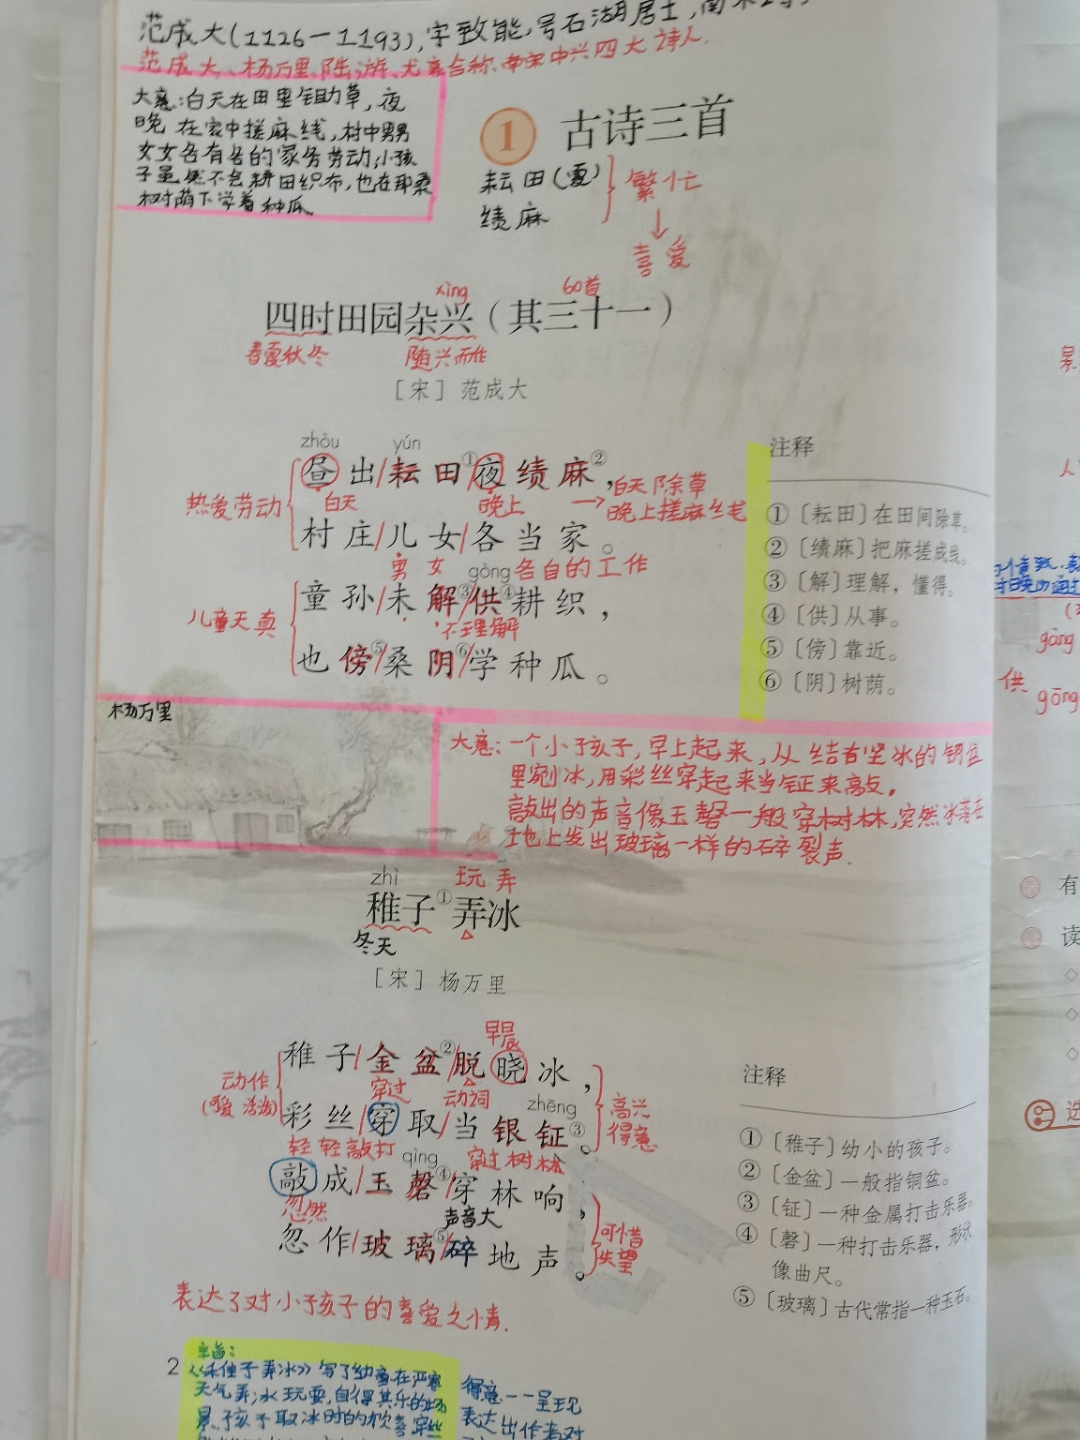 范成大(1126—1193),字致能,号石湖居士,南宋
范成大、杨万里、陆游、尤袤合称南宋中兴四大诗人.
大意:白天在田里锄草,夜
晚在家中搓麻线,村中男男
女女各有各的家务劳动,小孩
子虽然不会耕田织布,也在那桑
树荫下学着种瓜
1 古诗三首
耘田(夏)
繁忙
绩麻
喜爱
xìng
60首
四时田园杂兴(其三十一)
春夏秋冬
随兴而作
[宋] 范成大
zhòu yún
昼出/耘田①/夜绩麻②,
热爱劳动
白天
晚上
→白天除草
晚上搓麻丝毛
村庄/儿女/各当家。
男 女
gòng 各自的工作
童孙/未解③/供④耕织,
儿童天真
不理解
也傍⑤/桑阴⑥/学种瓜。
注释
①〔耘田〕在田间除草。
②〔绩麻〕把麻搓成线。
③〔解〕理解,懂得。
④〔供〕从事。
⑤〔傍〕靠近。
⑥〔阴〕树荫。
杨万里
大意:一个小孩子,早上起来,从结着坚冰的铜盆
里剜冰,用彩丝穿起来当钲来敲。
敲出的声音像玉磬一般穿树林,突然冰落在
地上发出玻璃一样的碎裂声.
zhì
玩弄
稚子①弄冰
冬天
[宋] 杨万里
早晨
稚子/金盆②/脱晓冰,
动作
(可爱 活泼)
穿过
动词
zhēng
彩丝/穿取/当银钲③。
高兴
得意
轻轻敲打
qìng
穿过树林
敲成/玉磬④/穿林响,
忽然
声音大
忽作/玻璃⑤/碎地声。
可惜
失望
注释
①〔稚子〕幼小的孩子。
②〔金盆〕一般指铜盆。
③〔钲〕一种金属打击乐器。
④〔磬〕一种打击乐器,形状
像曲尺。
⑤〔玻璃〕古代常指一种玉石。
表达了对小孩子的喜爱之情.
2
主旨:
《稚子弄冰》写了幼童在严寒
天气弄冰玩耍,自得其乐的场
景.孩子取冰时的欢喜穿丝
得意一一呈现
表达出作者对
gàng
供
gōng
有
读
选